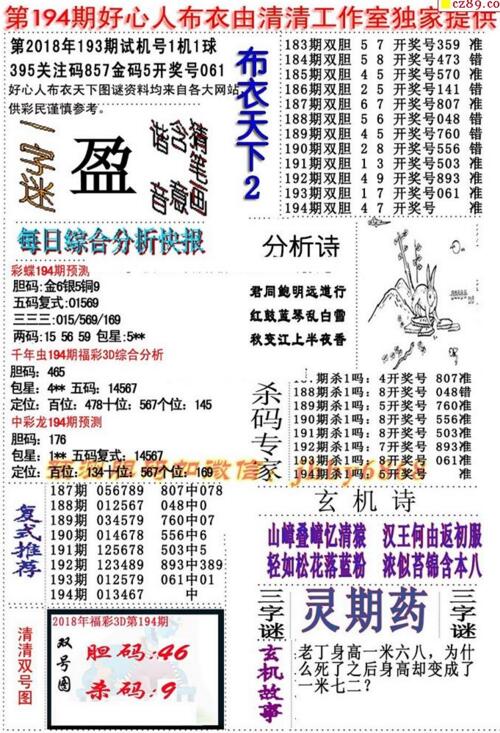 cz89.co
第194期好心人布衣由清清工作室独家提供
第2018年193期试机号1机1球
395关注码857金码5开奖号061
好心人布衣天下图谜资料均来自各大网站
供彩民谨慎参考。
一字迷
盈
猜含音
猜笔画意
布衣天下2
183期双胆 5 7 开奖号359 准
184期双胆 5 8 开奖号473 错
185期双胆 4 5 开奖号570 准
186期双胆 2 5 开奖号141 错
187期双胆 6 7 开奖号807 准
188期双胆 2 6 开奖号048 错
189期双胆 4 5 开奖号760 错
190期双胆 2 8 开奖号556 错
191期双胆 1 3 开奖号503 准
192期双胆 4 9 开奖号893 准
193期双胆 1 7 开奖号061 准
194期双胆 4 7 开奖号 准
每日综合分析快报
彩蝶194期预测
胆码：金6银5铜9
五码复式：01569
三三三：015/569/169
两码：15 56 59 包星：5**
千年虫194期福彩3D综合分析
胆码： 465
包星： 4** 五码： 14567
定位：百位：478十位：567个位：145
中彩龙194期预测
胆码： 176
包星： 1** 五码复式： 14567
定位： 百位：134十位：567个位：169
分析诗
君同鲍明远道行
红鼓蓝琴乱白雪
秋变江上半夜香
杀码专家
187期杀1吗：4开奖号 807准
188期杀1吗：8开奖号 048错
189期杀1吗：5开奖号 760准
190期杀1吗：9开奖号 556准
191期杀1吗：8开奖号 503准
192期杀1吗：2开奖号 893准
193期杀1吗：3开奖号 061准
194期杀1吗：5开奖号 准
复式推荐
187期 056789 807中078
188期 012567 048中0
189期 034579 760中07
190期 014678 556中6
191期 125678 503中5
192期 123489 893中389
193期 012579 061中01
194期 013467 中
玄机诗
山嶂叠嶂忆清猿 汉王何由返初服
轻如松花落蓝粉 浓似苔锦含本八
清清双号图
2018年福彩3D第194期
双号图
胆码:46
杀码:9
三字谜
灵期药
三字谜
玄机故事
老丁身高一米六八，为什
么死了之后身高却变成了
一米七二？